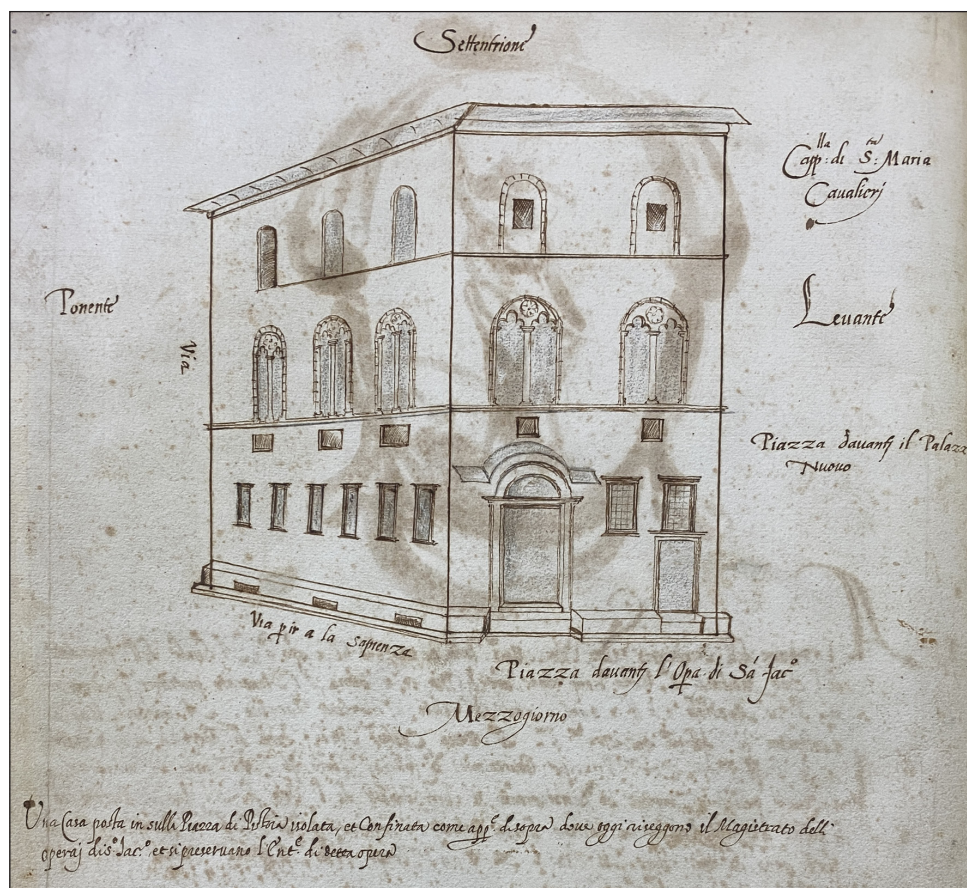 Settentrione
Capp:lla di S:ta Maria
Cavalierj
Ponente
Levante
Via
Piazza davantj il Palazz
Nuovo
Via p ir a la Sapienza
Piazza davantj l'Opa di Sá Jac.º
Mezzogiorno
Una Casa posta in sulla Piazza di Pistoia isolata, et Confinata come app.e di sopra dove oggi riseggono il Magistrato delli
operaj di s.º Jac.º, et si preservano l'Ent.e di detta opera